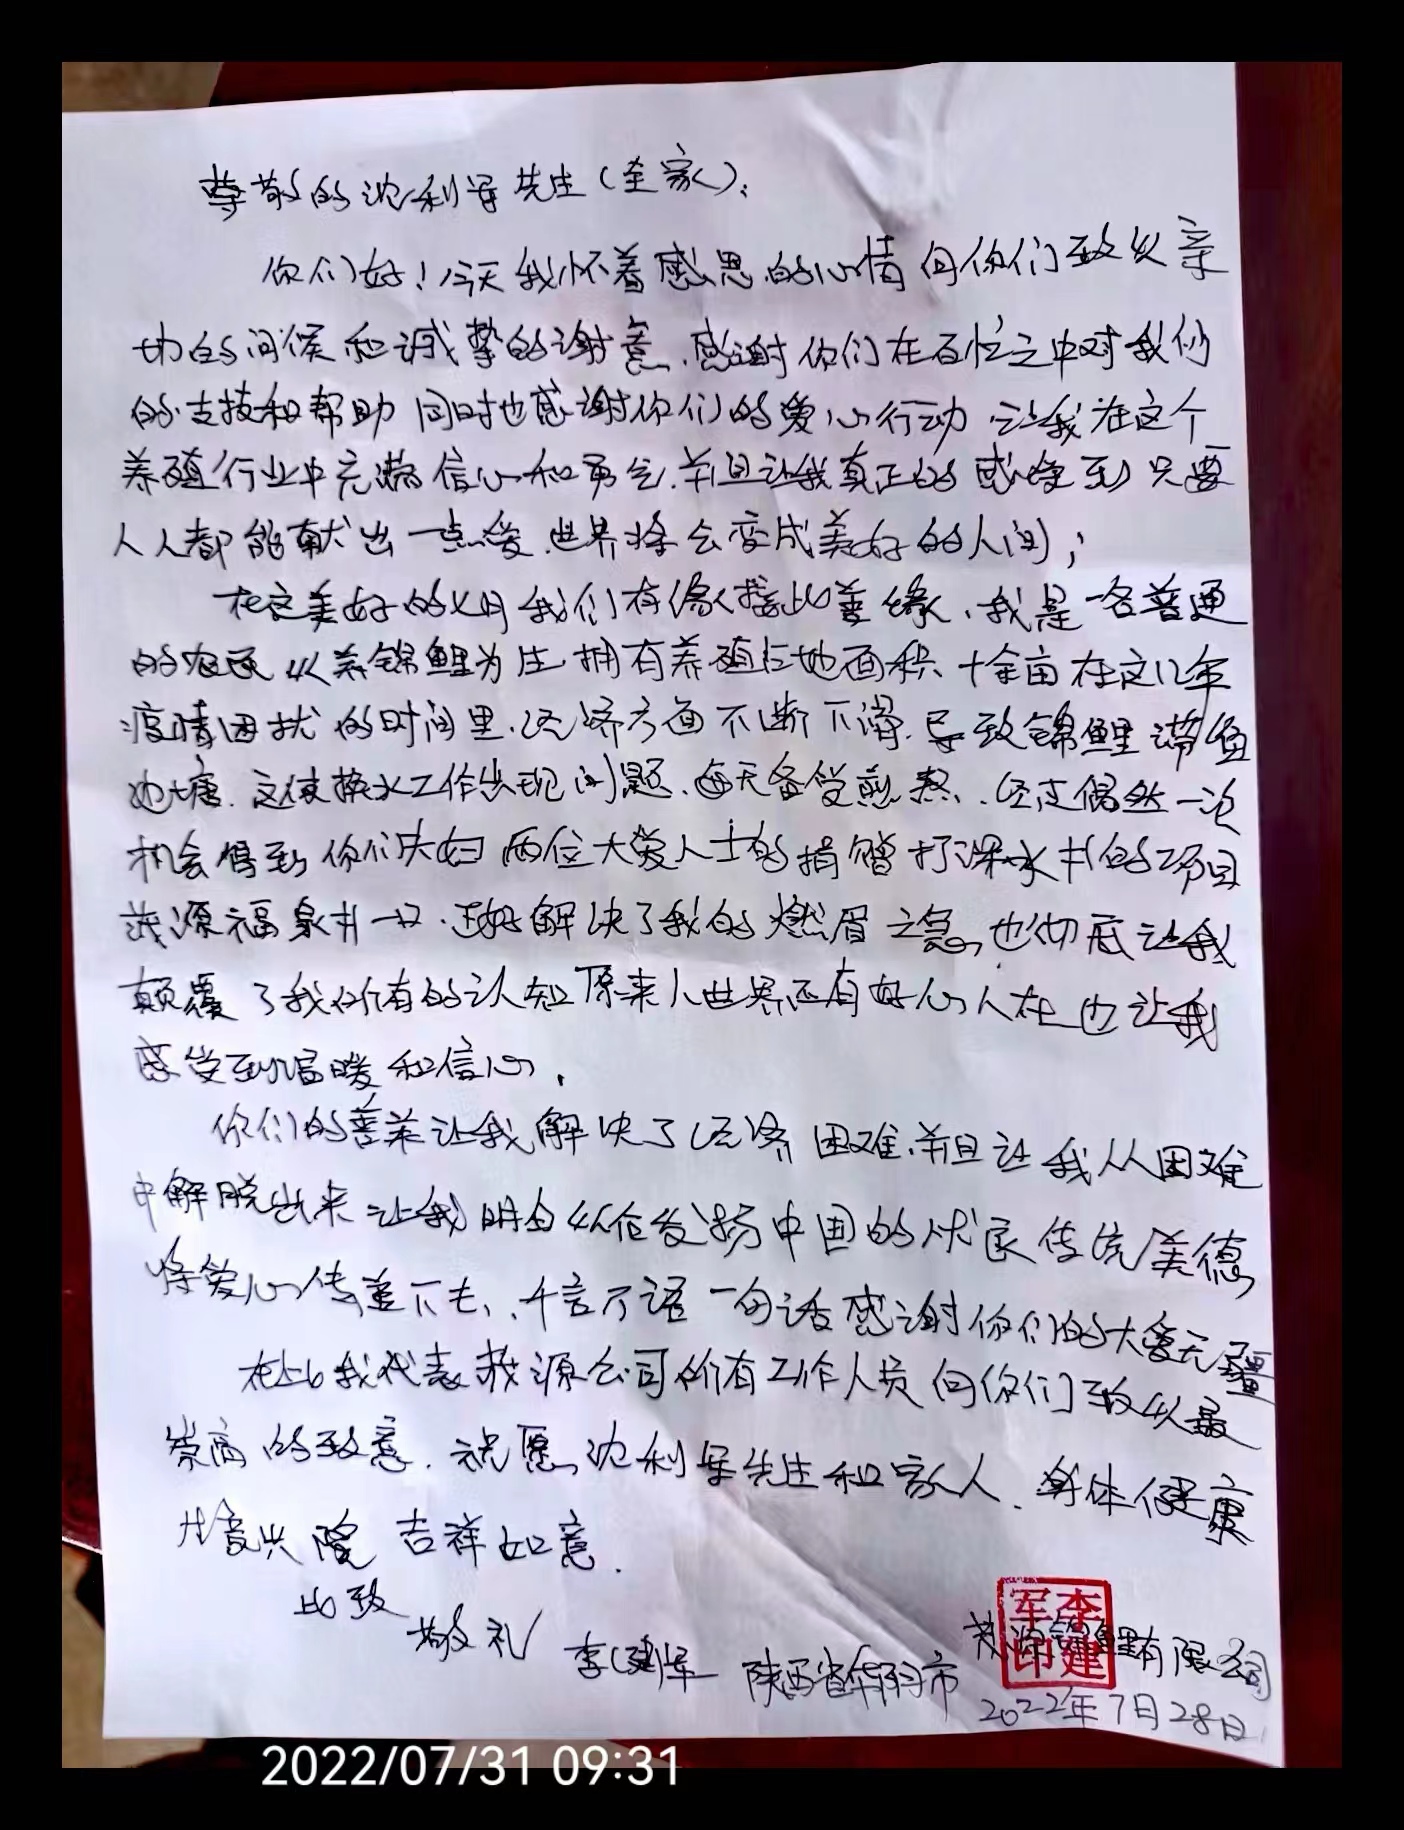 尊敬的沈利军先生(全家):
你们好!今天我怀着感恩的心情向你们致以亲
切的问候和诚挚的谢意.感谢你们在百忙之中对我们
的支持和帮助 同时也感谢你们的爱心行动 让我在这个
养殖行业中充满信心和勇气.并且让我真正的感悟到只要
人人都能献出一点爱.世界将会变成美好的人间;
在这美好的七月我们有缘接此善缘.我是一名普通
的农民 以养锦鲤为生 拥有养殖占地面积十余亩在这几年
疫情困扰的时间里.经济方面不断下滑.导致锦鲤满鱼
池塘.这使换水工作出现问题.每天备受煎熬.经过偶然一次
机会得到你们夫妇两位大爱人士的捐赠打深水井的项目
茂源福泉井一口.正好解决了我的燃眉之急 也彻底让我
颠覆了我所有的认知原来人世界还有好心人在 也让我
感受到温暖和信心.
你们的善举让我解决了经济困难.并且让我从困难
中解脱出来 让我明白如何发扬中国的优良传统美德
将爱心传递下去.千言万语一句话感谢你们的大爱无疆
在此我代表茂源公司所有工作人员向你们致以最
崇高的致意.祝愿沈利军先生和家人.身体健康
吉祥如意.
此致
敬礼
李建军 陕西省 市 有限公司
李建军印
2022年7月28日
2022/07/31 09:31